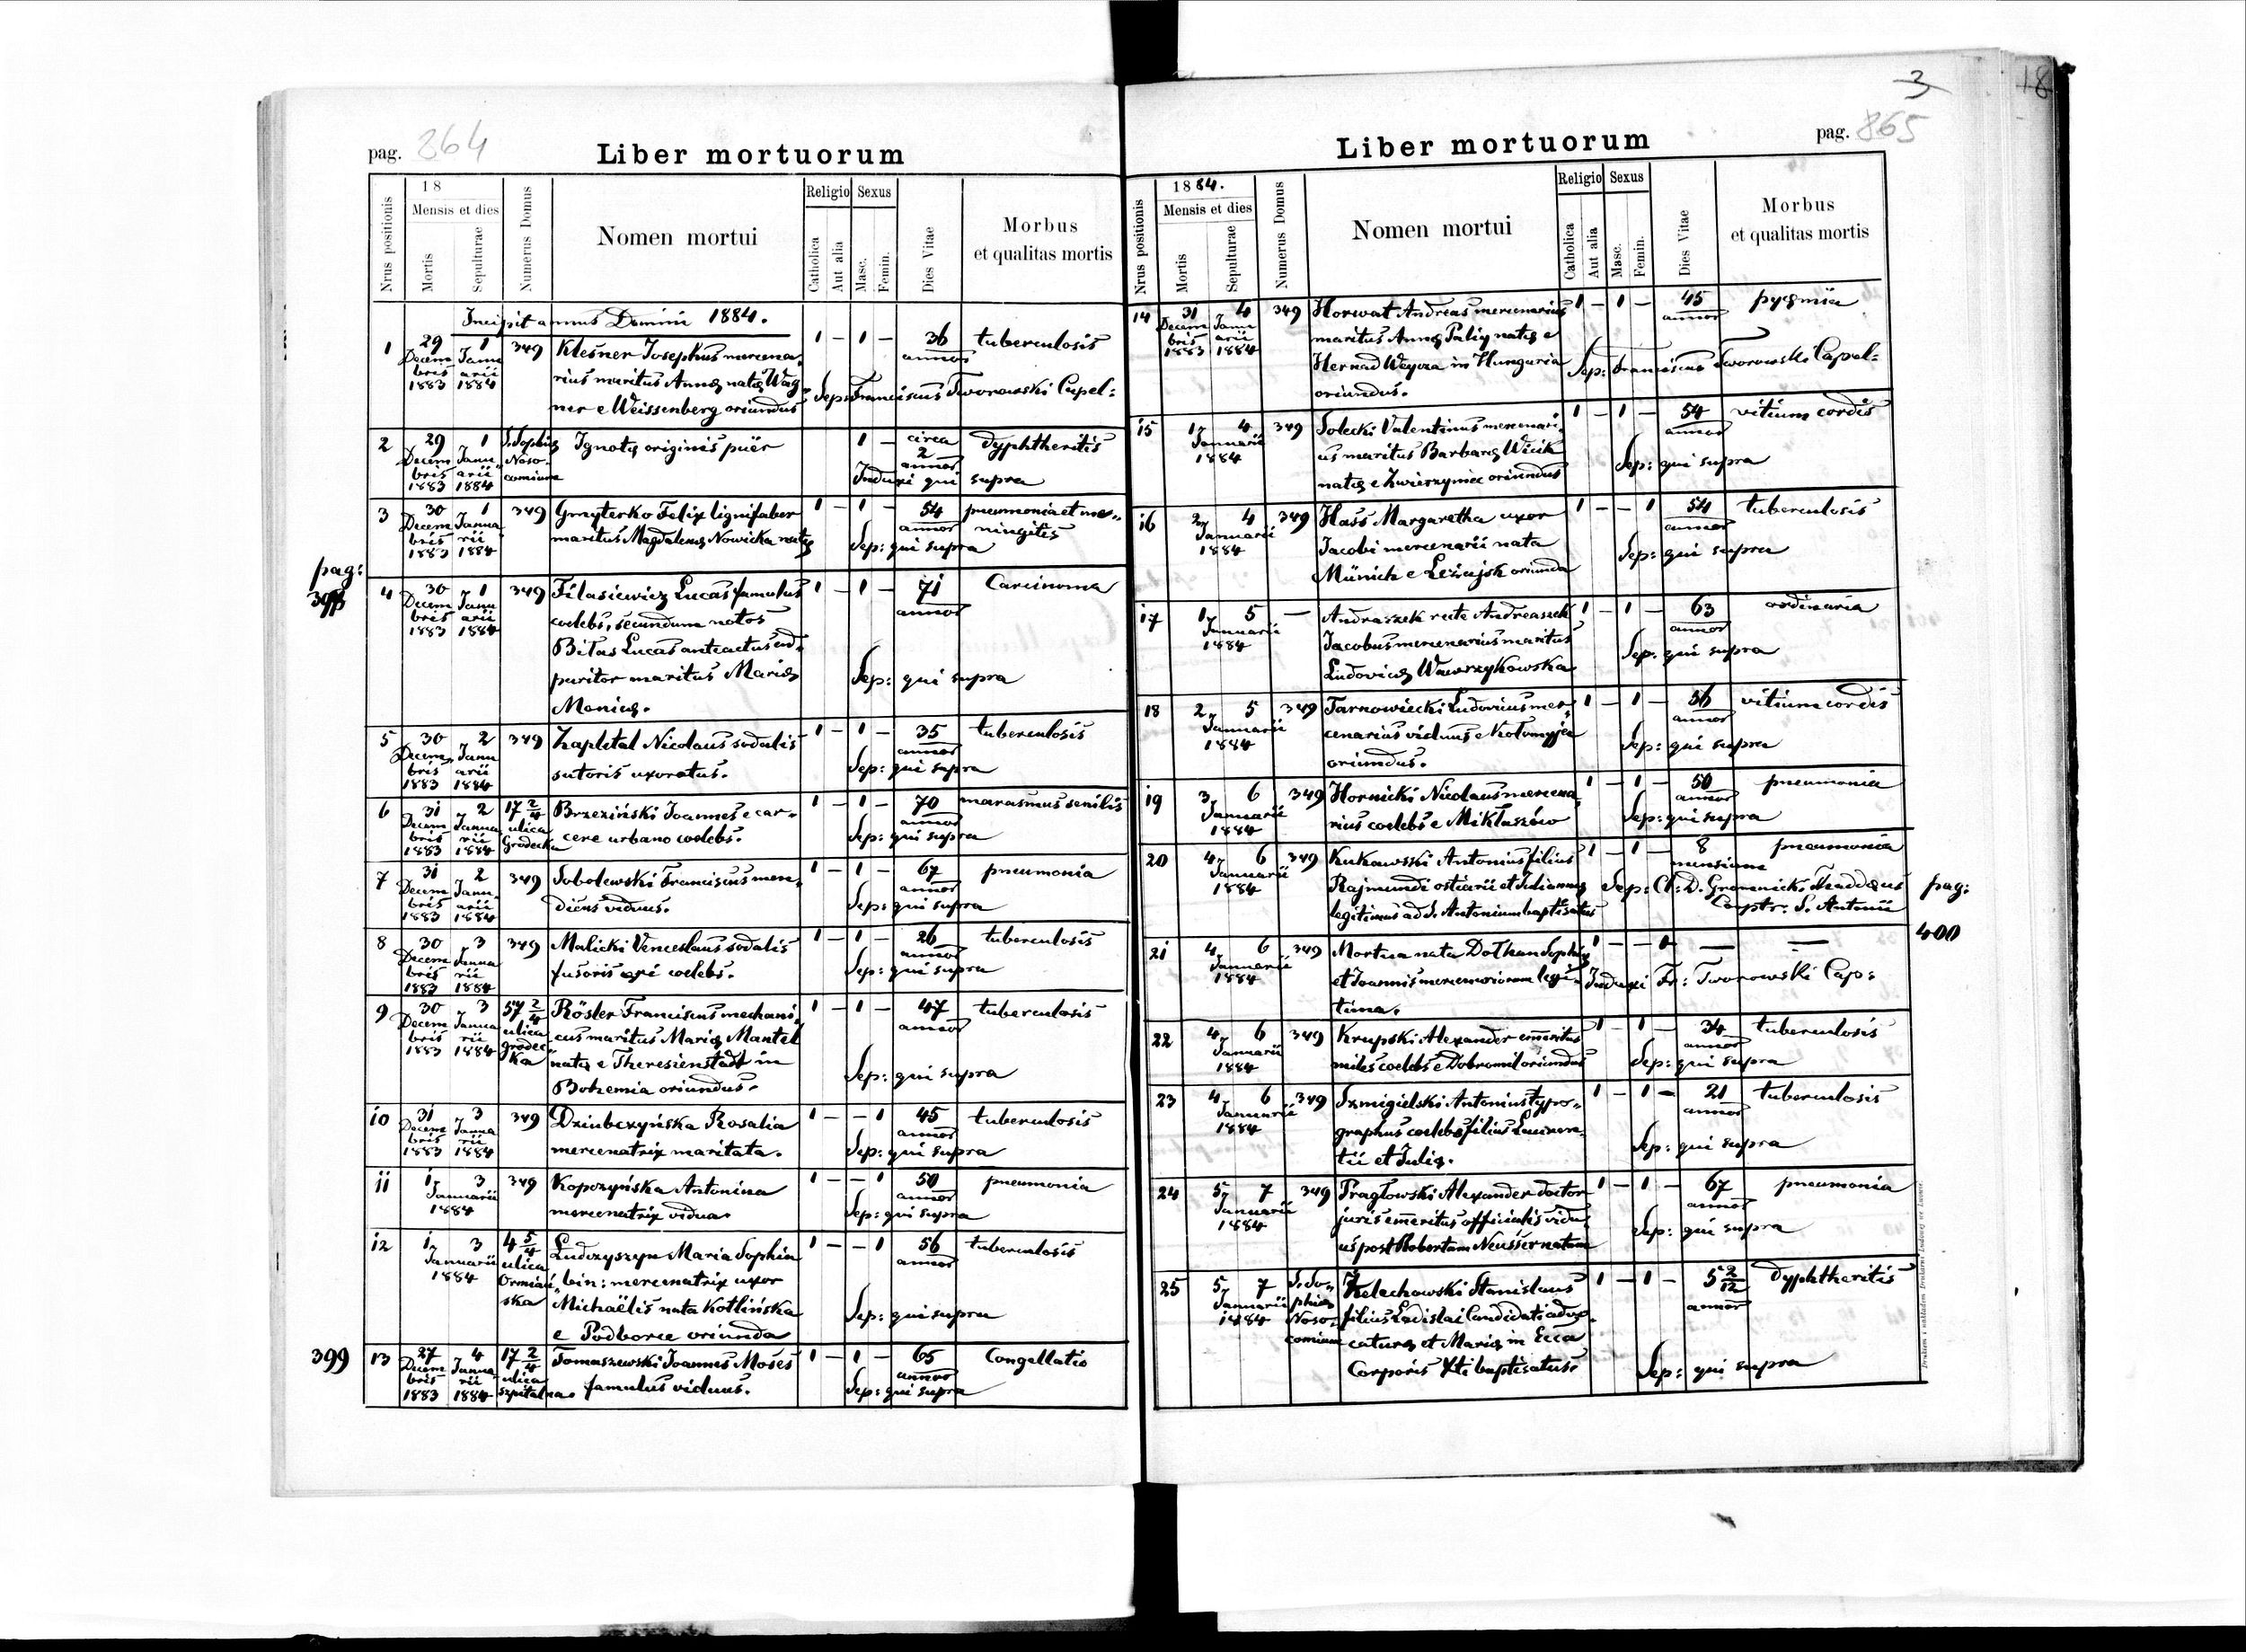 pag. 864
Liber mortuorum
Nrus positionis
18
Mensis et dies
Mortis
Sepulturae
Numerus Domus
Nomen mortui
Religio
Catholica
Aut alia
Sexus
Masc.
Femin.
Dies Vitae
Morbus
et qualitas mortis
Incipit annus Domini 1884.
1 29 Decem bris 1883 1 Janu arii 1884 349
Klesner Josephus mercena-
rius maritus Annę natę Wag-
ner e Weissenberg oriundus
1 – 1 – 36 annor tuberculosis
Sep: Franciscus Tworowski Capel:
2 29 Decem bris 1883 1 Janu arii 1884 S. Sophię Noso- comium
Ignotę originis puër
1 – circa 2 annor dyphtheritis
Induxi qui supra
3 30 Decem bris 1883 1 Janua rii 1884 349
Gmyterko Felix lignifaber
maritus Magdalenę Nowicka natę
1 – 1 – 54 annor pneumonia et me-
ningitis
Sep: qui supra
pag:
4 30 Decem bris 1883 1 Janu arii 1884 349
Filasiewicz Lucas famulus
coelebs, secundum notos
Bitas Lucas anteactus ad-
paritor maritus Marię
Monicę.
1 – 1 – 71 annor Carcinoma
Sep: qui supra
5 30 Decem bris 1883 2 Janu arii 1884 349
Zapletal Nicolaus sodalis
sutoris uxoratus.
1 – 1 – 35 annor tuberculosis
Sep: qui supra
6 31 Decem bris 1883 2 Janua rii 1884 17 2/4 ulica Grodecka
Brzeziński Joannes e car-
cere urbano coelebs.
1 – 1 – 70 annor marasmus senilis
Sep: qui supra
7 31 Decem bris 1883 2 Janu arii 1884 349
Sobolewski Franciscus men-
dicus viduus.
1 – 1 – 67 annor pneumonia
Sep: qui supra
8 30 Decem bris 1883 3 Janua rii 1884 349
Malicki Venceslaus sodalis
fusoris ęri coelebs.
1 – 1 – 26 annor tuberculosis
Sep: qui supra
9 30 Decem bris 1883 3 Janua rii 1884 57 2/4 ulica grodec- ka
Rösler Franciscus mechani-
cus maritus Marię Mantel
natę e Theresienstadt in
Bohemia oriundus.
1 – 1 – 47 annor tuberculosis
Sep: qui supra
10 31 Decem bris 1883 3 Janua rii 1884 349
Dziubczyńska Rosalia
mercenatrix maritata.
1 – – 1 45 annor tuberculosis
Sep: qui supra
11 1, 3 Januarii 1884 349
Kopczyńska Antonina
mercenatrix vidua.
1 – – 1 50 annor pneumonia
Sep: qui supra
12 1, 3 Januarii 1884 4 5/4 ulica Ormiań- ska
Ludczyszyn Maria Sophia
bin: mercenatrix uxor
Michaëlis nata Kotlińska
e Podborce oriunda
1 – – 1 56 annor tuberculosis
Sep: qui supra
399
13 27 Decem bris 1883 4 Janua rii 1884 17 2/4 ulica szpitalna
Tomaszewski Joannes Moses
famulus viduus.
1 – 1 – 65 annor Congellatio
Sep: qui supra
3
18
Liber mortuorum
pag. 865
Nrus positionis
1884.
Mensis et dies
Mortis
Sepulturae
Numerus Domus
Nomen mortui
Religio
Catholica
Aut alia
Sexus
Masc.
Femin.
Dies Vitae
Morbus
et qualitas mortis
14 31 Decem bris 1883 4 Janu arii 1884 349
Horwat Andreas mercenarius
maritus Annę Palię natę e
Hernad Weyza in Hungaria
oriundus.
1 – 1 – 45 annor pyęmia
Sep: Franciscus Tworowski Capel:
15 1, 4 Januarii 1884 349
Solecki Valentinus mercenari-
us maritus Barbarę Wicik
natę e Zwierzyniec oriundus
1 – 1 – 54 annor vitium cordis
Sep: qui supra
16 2, 4 Januarii 1884 349
Hass Margaretha uxor
Jacobi mercenarii nata
Münich e Leżajsk oriunda
1 – – 1 54 annor tuberculosis
Sep: qui supra
17 1, 5 Januarii 1884 –
Andraszek recte Andreaszek
Jacobus mercenarius maritus
Ludovicę Wawrzykowska
1 – 1 – 63 annor ordinaria
Sep. qui supra
18 2, 5 Januarii 1884 349
Tarnowiecki Ludovicus mer-
cenarius viduus e Kołomyja
oriundus.
1 – 1 – 56 annor vitium cordis
Sep: qui supra
19 3, 6 Januarii 1884 349
Hornicki Nicolaus mercena-
rius coelebs e Mikłaszów
1 – 1 – 50 annor pneumonia
Sep: qui supra
20 4, 6 Januarii 1884 349
Kukawski Antonius filius
Rajmundi ostiarii et Juliannę
legitimus ad S. Antonium baptisatus
1 – 1 – 8 mensium pneumonia
Sep: Cl: D. Gromnicki Thaddęus
Cooptr: S. Antonii
pag:
400
21 4, 6 Januarii 1884 349
Mortua nata Dothan Sophię
et Joannis mercenariorum legi-
tima.
1 – – 1 — —
Induxi Fr: Tworowski Cap:
22 4, 6 Januarii 1884 349
Krupski Alexander emeritus
miles coelebs e Dobromil oriundus
1 – 1 – 34 annor tuberculosis
Sep: qui supra
23 4, 6 Januarii 1884 349
Szmigielski Antonius typo-
graphus coelebs filius Lauren-
tii et Julię.
1 – 1 – 21 annor tuberculosis
Sep: qui supra
24 5, 7 Januarii 1884 349
Pragłowski Alexander doctor
juris emeritus officialis vidu-
us post Robertam Neusser natam
1 – 1 – 67 annor pneumonia
Sep: qui supra
25 5, 7 Januarii 1884 S. So- phię Noso- comium
Żelechowski Stanislaus
filius Ladislai Candidati advo-
caturę et Marię in Ecca
Corporis Xti baptisatus.
1 – 1 – 5 2/12 annor dyphtheritis
Sep: qui supra